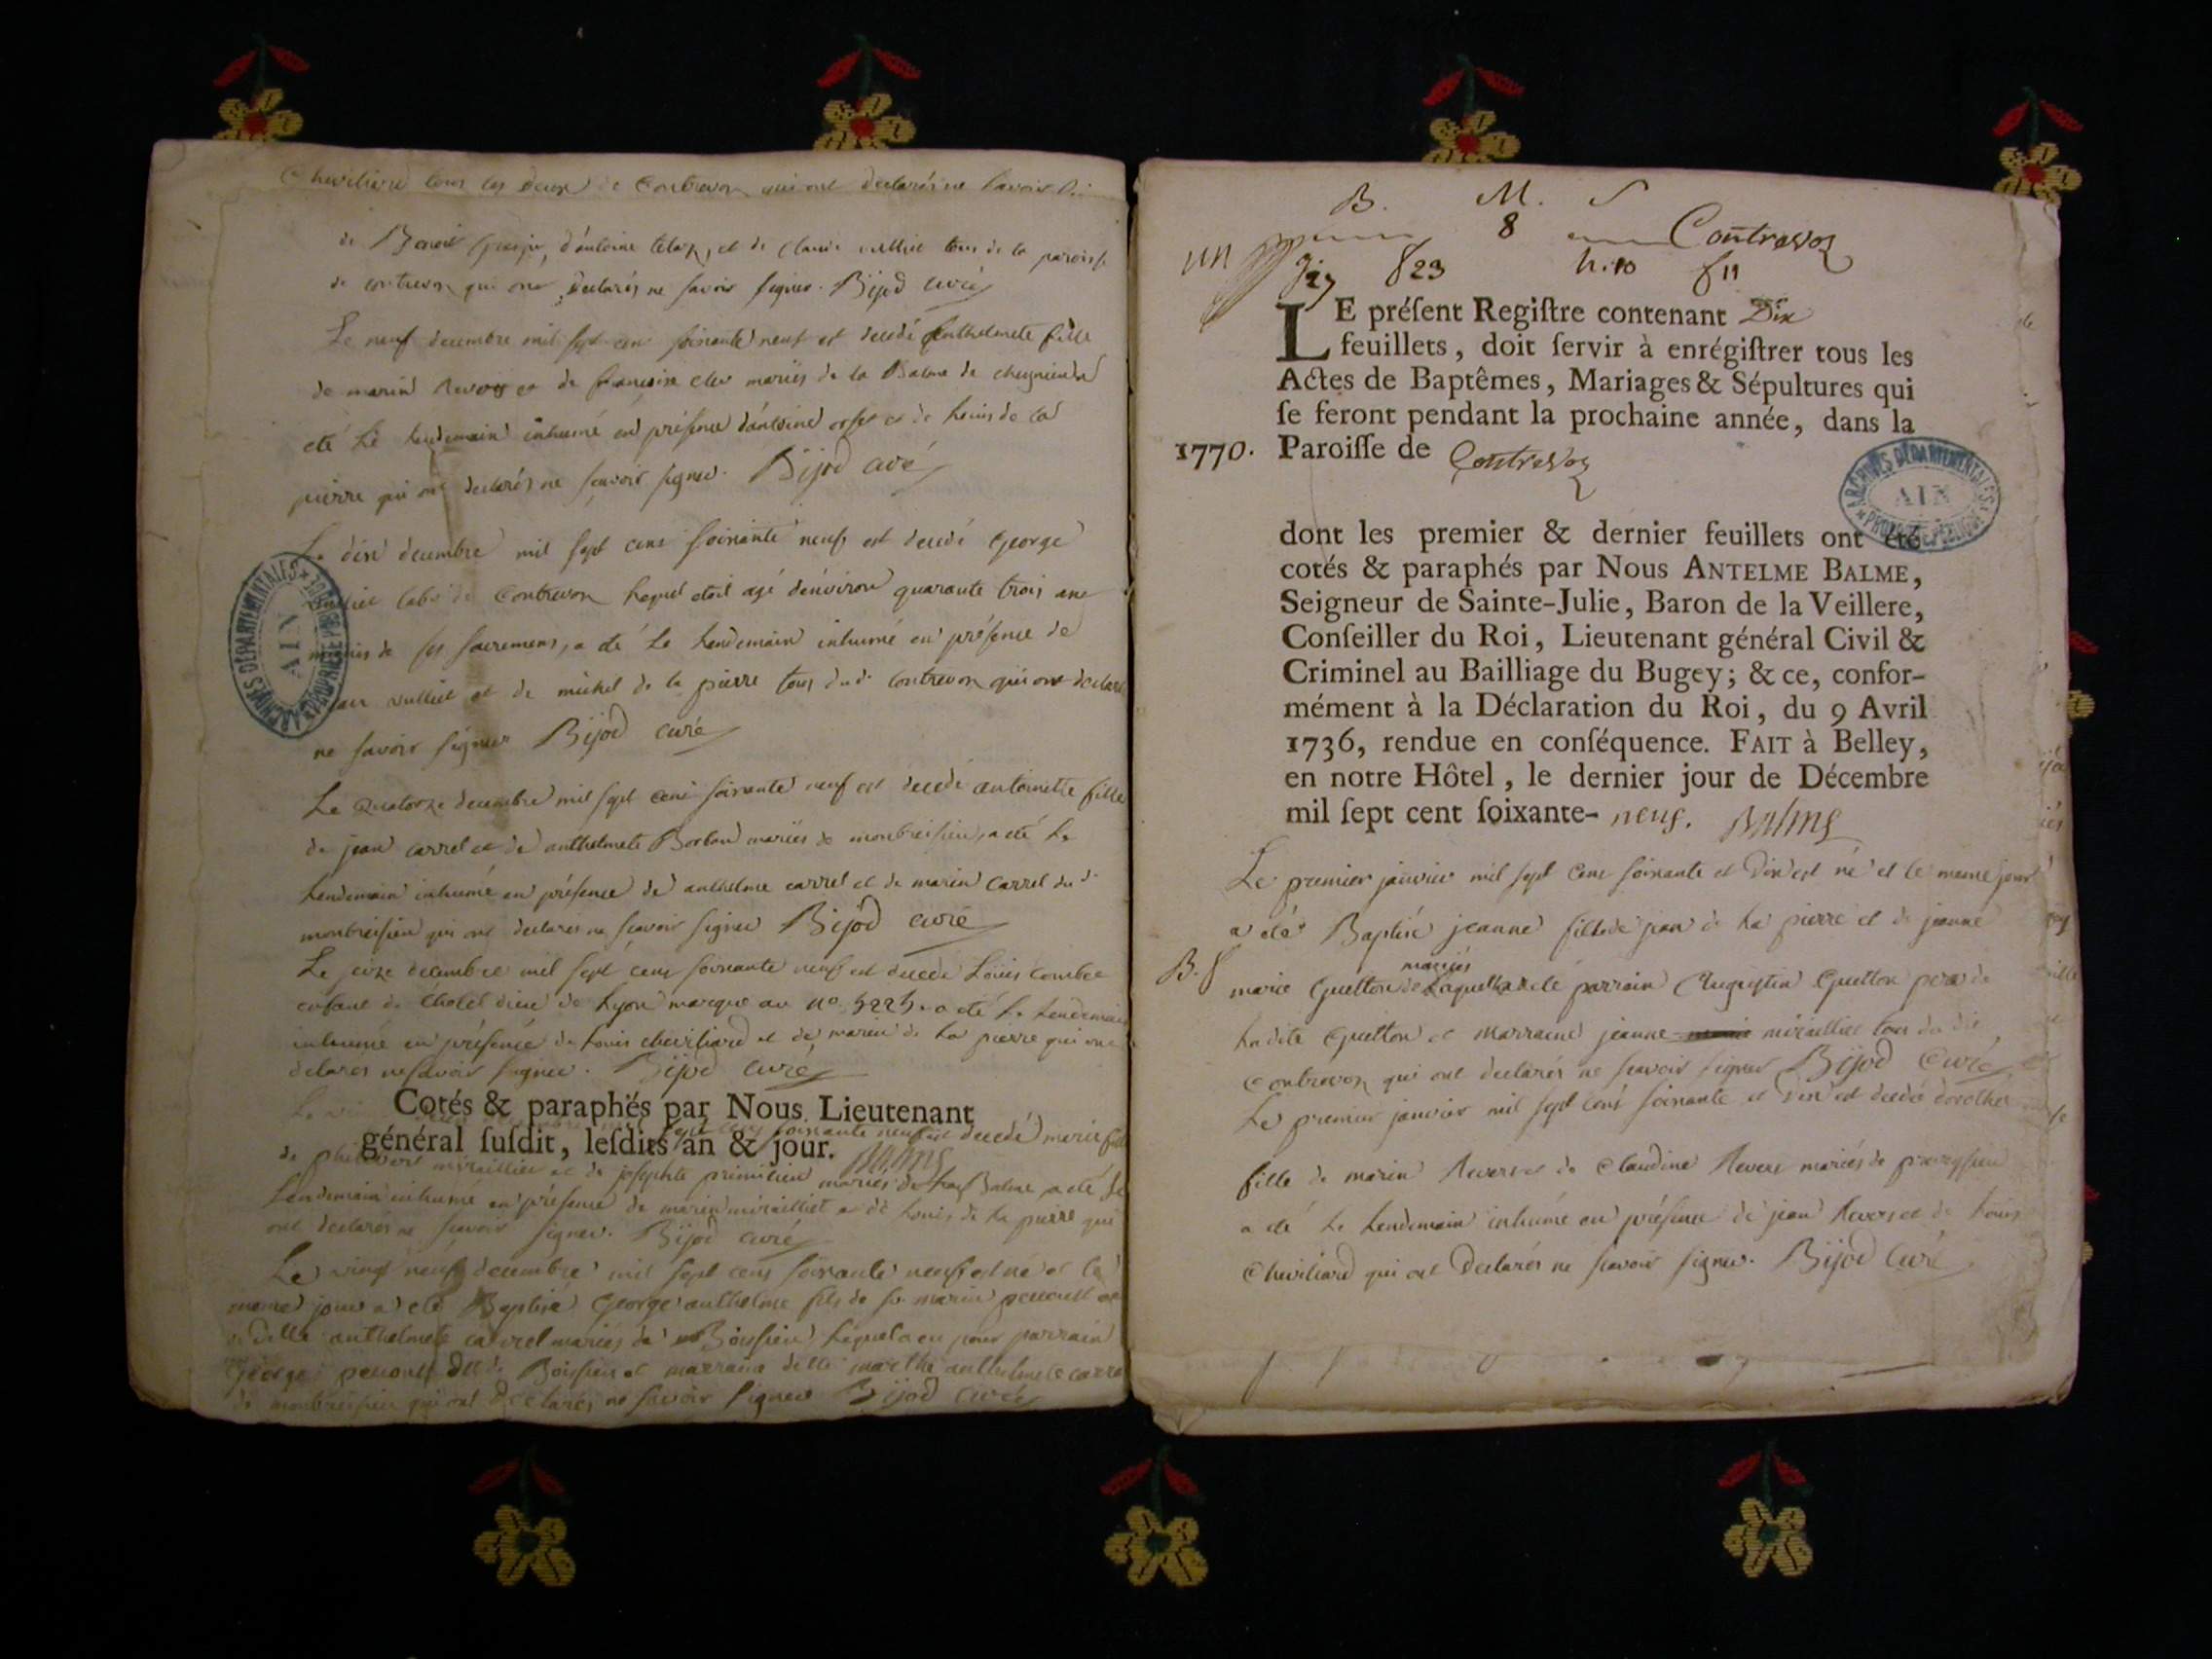 Cheviliard tous les deux de Contrevoz qui ont declarés ne savoir
de Benoit d'antoine et de Claude vulliet tous de la paroisse
de contrevoz qui ont declarés ne savoir signer. Bijod curé
Le neuf decembre mil sept cent soixante neuf est decedé anthelmete fille
de marin Revoy et de françoise mariés de la Balme de
eté le lendemain inhumé en présence d'antoine et de louis de la
pierre qui ont declarés ne sçavoir signer. Bijod curé
Le dixe decembre mil sept cens soixante neuf est decedé George
vulliet labr de Contrevoz lequel etoit agé d'environ quarante trois ans
munis de ses sacremens, a eté le lendemain inhumé en présence de
vulliet et de michel de la pierre tous dud. Contrevoz qui ont declarés
ne savoir signer Bijod curé
Le quatorze decembre mil sept cens soixante neuf est decedé antoinette fille
de jean carrel et de anthelmete Borbon mariés de montbreisieu, a eté le
lendemain inhumé en présence de anthelme carrel et de marin Carrel dud.
montbreisieu qui ont declarés ne sçavoir signer Bijod curé
Le seize decembre mil sept cens soixante neuf est decedé Loüis Combe
enfant de l'hotel dieu de Lyon marque au no. 5225. a eté le lendemain
inhumé en présence de louis cheviliard et de marin de la pierre qui ont
declarés ne savoir signer. Bijod curé
Cotés & paraphés par Nous Lieutenant
sept cens soixante neuf est decedé marie fille
général ſuſdit, leſdits an & jour. Balme
de miraillier et de josephte mariés de la Balme a eté le
lendemain inhumé en présence de marin miralliet et de louis de la pierre qui
ont declarés ne sçavoir signer. Bijod curé
Le vingt neuf decembre mil sept cens soixante neuf est né et le
meme jour a eté Baptisé George anthelme fils de sr. marin
de delle anthelmete carrel mariés de Boissieu lequel a eu pour parrain
George de Boissieu et marraine delle marthe anthelmete carrel
de montbreisieu qui ont declarés ne sçavoir signer Bijod curé
B. M. S
8 Contrevoz
g 27 f 23 h. 10 f 11
LE préſent Regiſtre contenant Dix
feuillets, doit ſervir à enrégiſtrer tous les
Actes de Baptêmes, Mariages & Sépultures qui
ſe feront pendant la prochaine année, dans la
1770. Paroiſſe de Contrevoz
ARCHIVES DÉPARTEMENTALES
AIN
dont les premier & dernier feuillets ont été
cotés & paraphés par Nous ANTELME BALME,
Seigneur de Sainte-Julie, Baron de la Veillere,
Conſeiller du Roi, Lieutenant général Civil &
Criminel au Bailliage du Bugey; & ce, confor-
mément à la Déclaration du Roi, du 9 Avril
1736, rendue en conſéquence. FAIT à Belley,
en notre Hôtel, le dernier jour de Décembre
mil ſept cent ſoixante- neuf. Balme
Le premier janvier mil sept cens soixante et Dix est né et le meme jour
a eté Baptisé jeanne fille de jean de la pierre et de jeanne
mariés
B. f marie Guetton de laquelle a eté parrain Augustin Guetton pere de
ladite Guetton et marraine jeanne miralliet tous du dit
Contrevoz qui ont declarés ne sçavoir signer Bijod Curé
Le premier janvier mil sept cens soixante et Dix est decedé dorothée
fille de marin Revers et de Claudine Revers mariés de
a eté le lendemain inhumé en présence de jean Revers et de louis
Cheviliard qui ont Declarés ne sçavoir signer. Bijod Curé